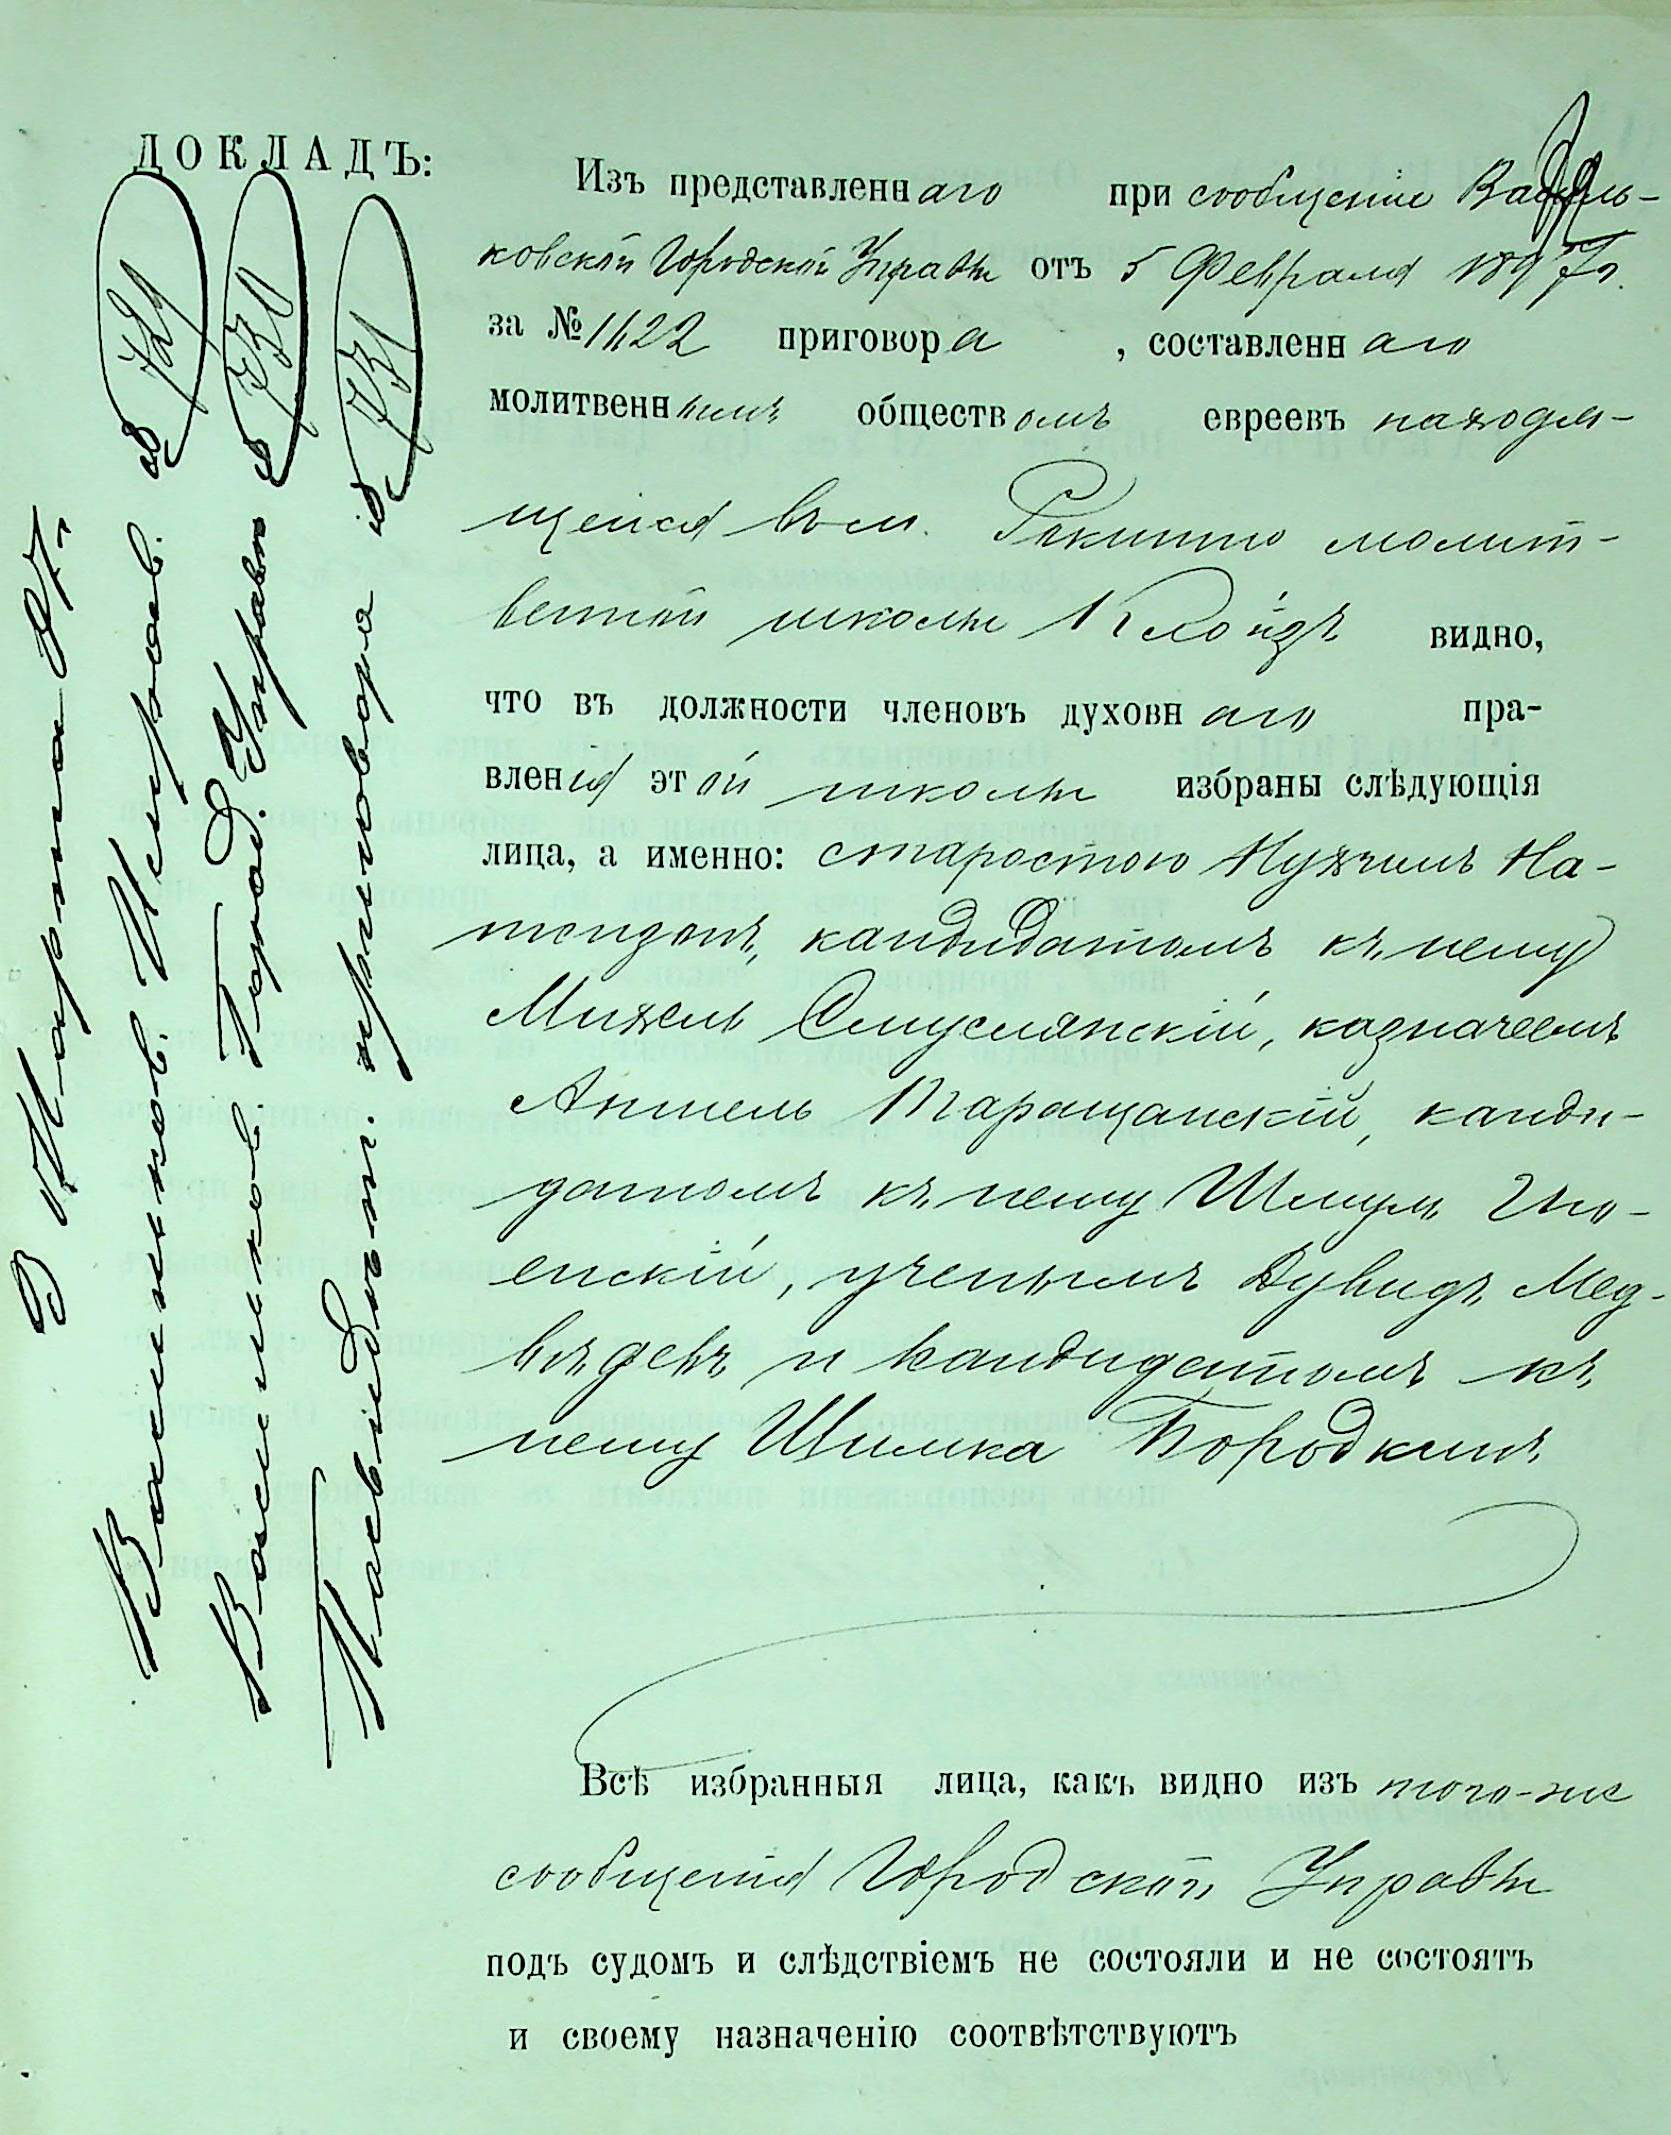 ДОКЛАДЪ:
Изъ представленнаго при сообщеніи Василь-
ковской Городской Управы отъ 5 Февраля 1897 г.
за № 1422 приговора, составленнаго
молитвеннымъ обществомъ евреевъ находя-
щейся въ м. Рокитно молит-
венной школы Клойзъ видно,
что въ должности членовъ духовнаго пра-
вленія этой школы избраны слѣдующія
лица, а именно: старостою Нухимъ На-
тензонъ, кандидатомъ къ нему
Михель Смуслянскій, казначеемъ
Аншель Таращанскій, канди-
датомъ къ нему Шмуль Гно-
енскій, ученымъ Дувидъ Мед-
вѣдевъ и кандидатомъ къ
нему Шимка Бородкинъ
Всѣ избранныя лица, какъ видно изъ того-же
сообщенія Городской Управы
подъ судомъ и слѣдствіемъ не состояли и не состоятъ
и своему назначенію соотвѣтствуютъ
3 Марта 97 г.
Васильков. Исправ. в 729
Васильков. Город. Управы в 730
приговора в 731